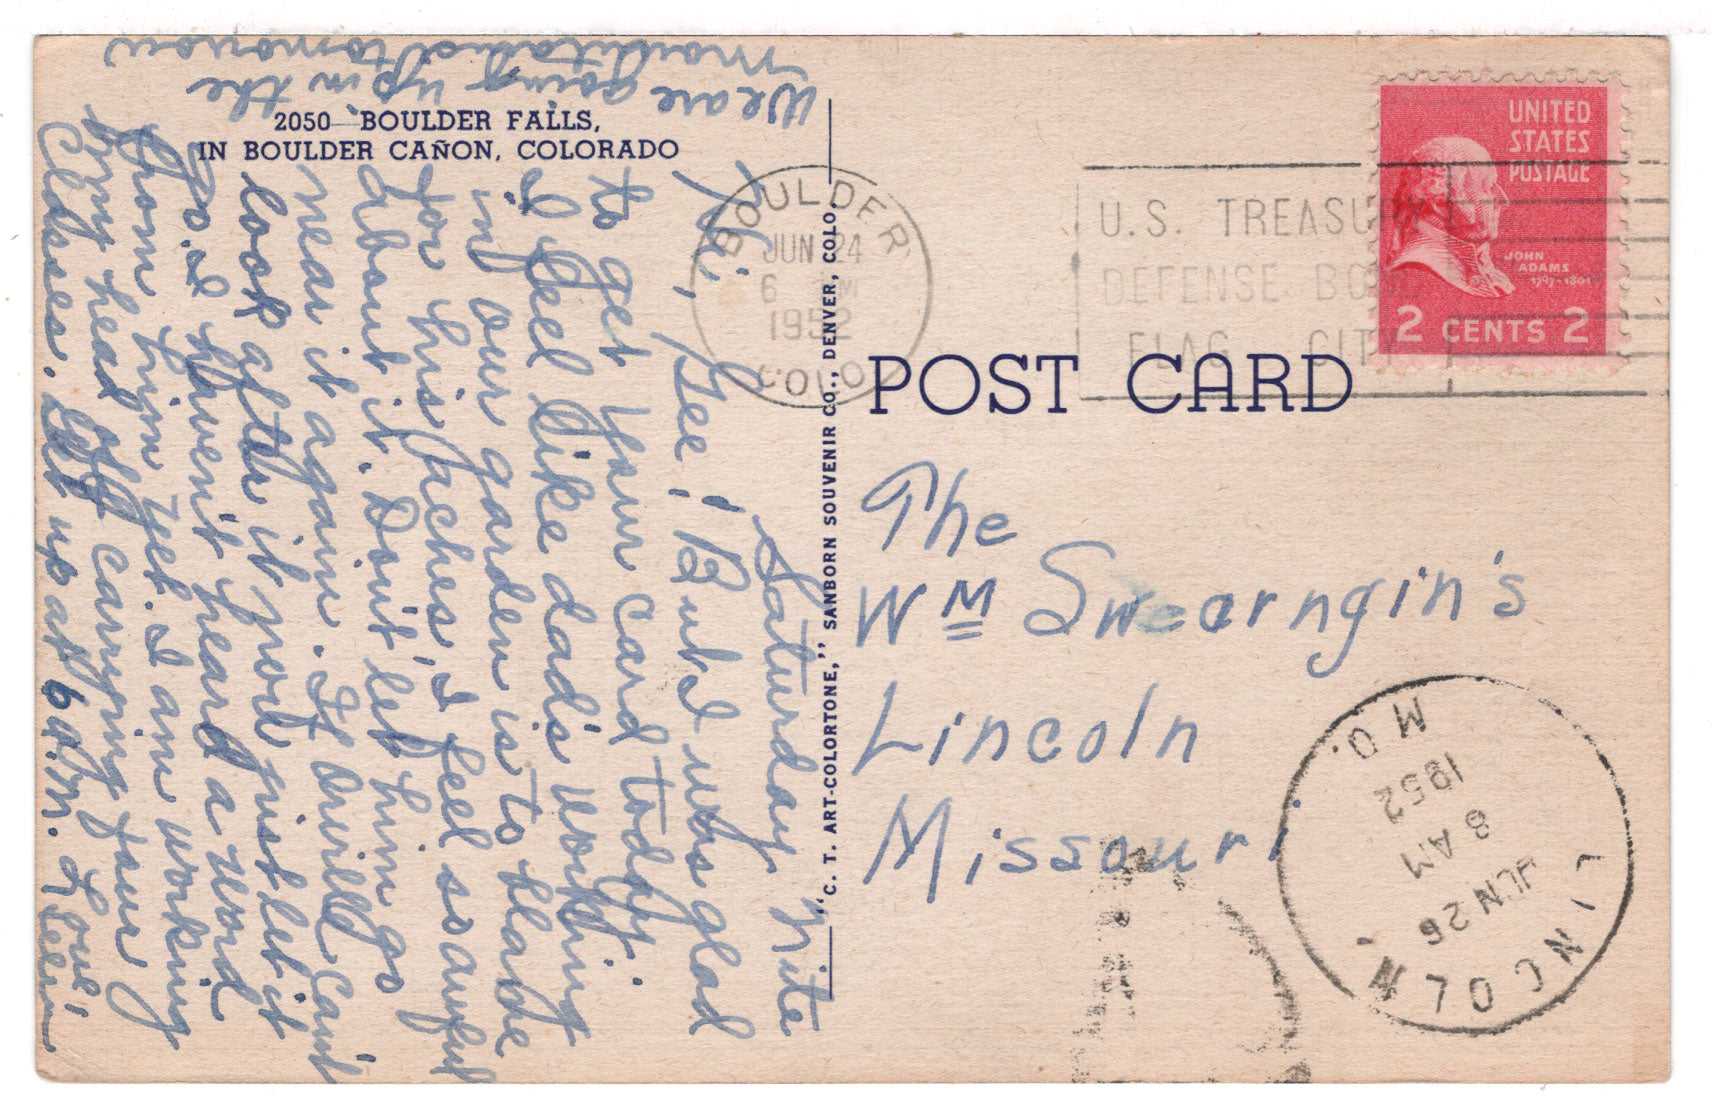 2050 BOULDER FALLS,
IN BOULDER CAÑON, COLORADO
Saturday Nite
Hi, Gee! But I was glad
to get your card today.
I feel like dad's working
in our garden is to blame
for his aches, I feel so awful
about it. Don't let him go
near it again. If Orville can't
look after it good just let it
go. I haven't heard a word
from him yet. I am working
my head off carrying four
Classes. Get up at 6 A.M. Love,
We are going up in the
Mountains tomorrow
"C. T. ART-COLORTONE," SANBORN SOUVENIR CO., DENVER, COLO
POST CARD
BOULDER
JUN 24
6 PM
1952
COLO
U.S. TREASURY
DEFENSE BOND
FLAG CITY
UNITED
STATES
POSTAGE
JOHN
ADAMS
1797-1801
2 CENTS 2
The
Wm Swearngin's
Lincoln
Missouri
LINCOLN
JUN 26
8 AM
1952
MO.